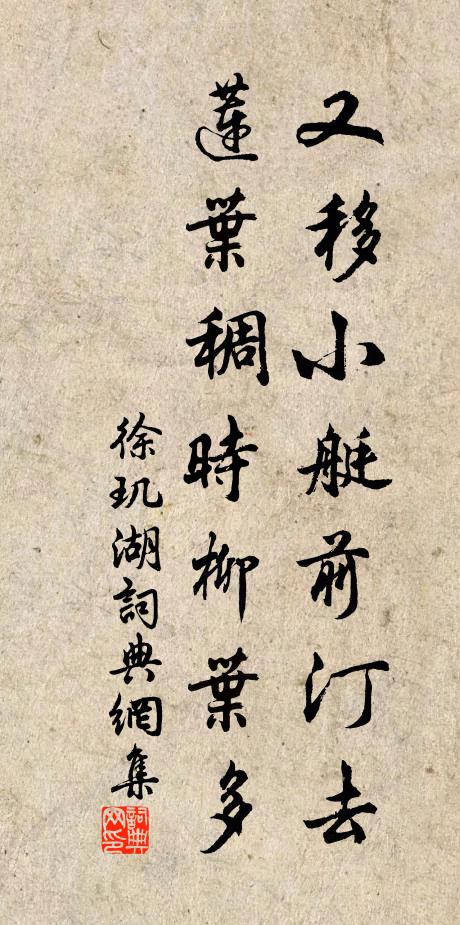 又移小艇前汀去
蓮葉稠時柳葉多
徐玑湖詞典網集
詞典网印